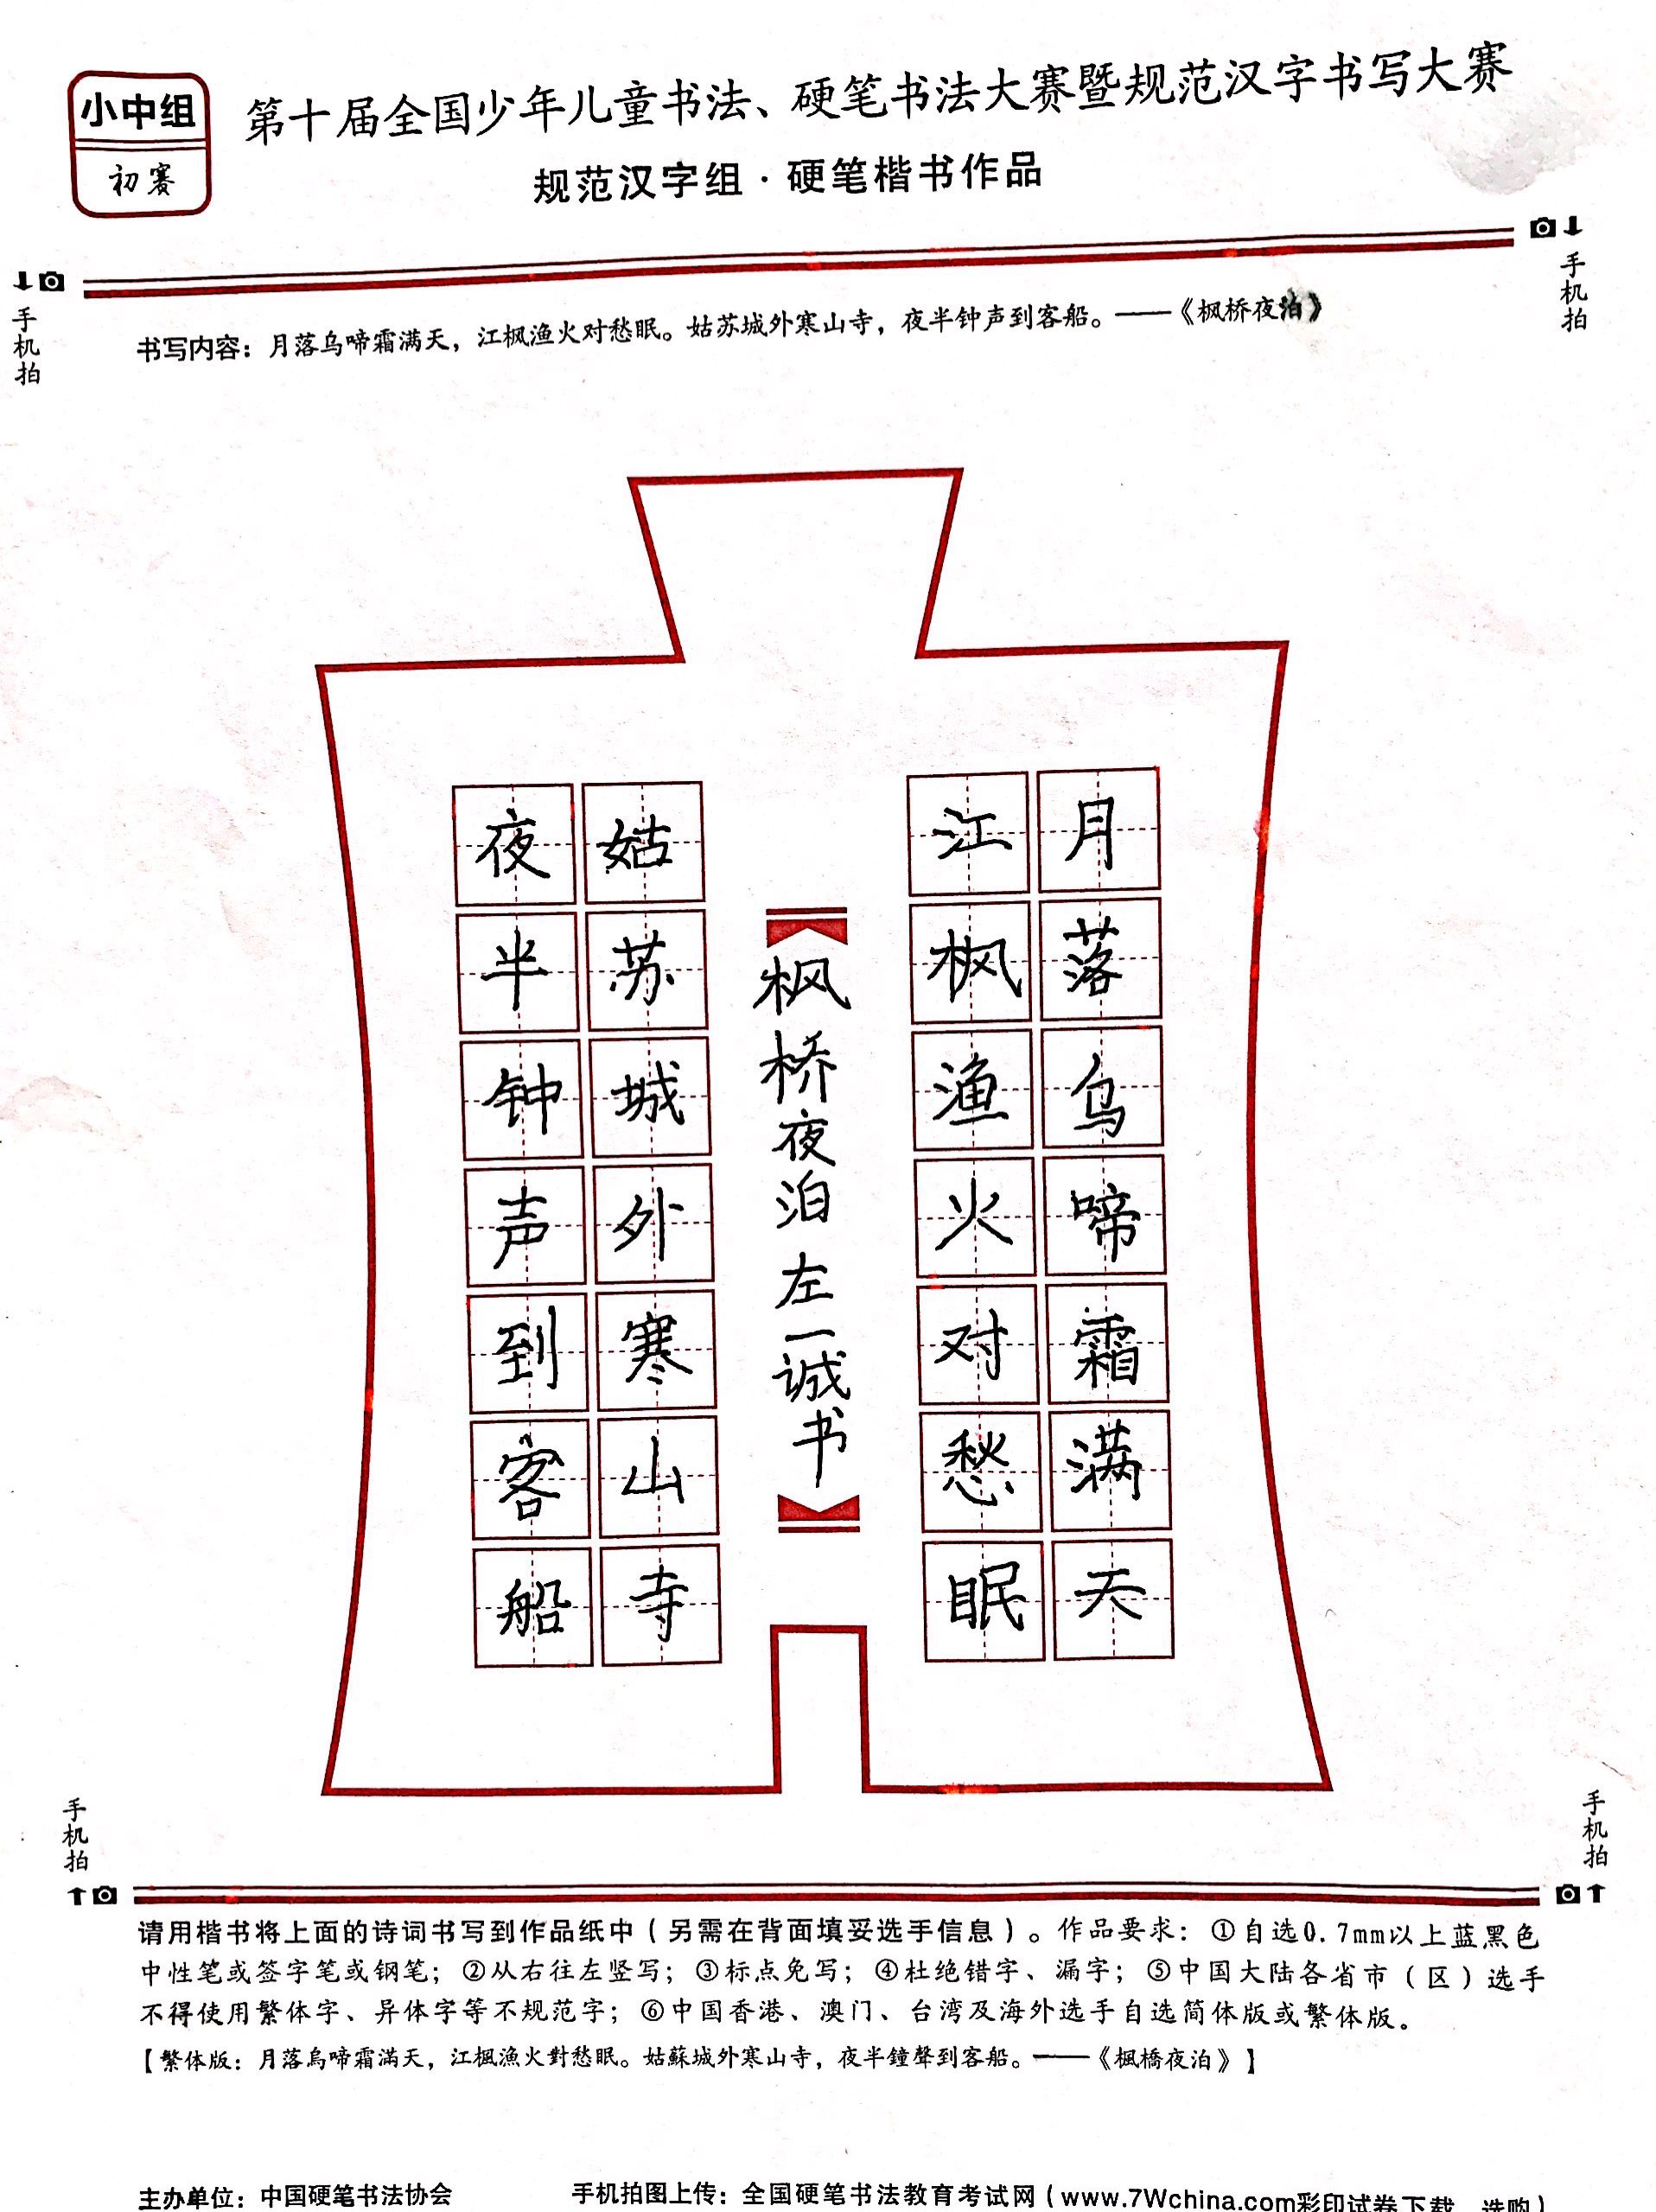 小中组
初赛
第十届全国少年儿童书法、硬笔书法大赛暨规范汉字书写大赛
规范汉字组·硬笔楷书作品
手机拍
手机拍
书写内容：月落乌啼霜满天，江枫渔火对愁眠。姑苏城外寒山寺，夜半钟声到客船。——《枫桥夜泊》
月落乌啼霜满天
江枫渔火对愁眠
枫桥夜泊 左一诚书
姑苏城外寒山寺
夜半钟声到客船
手机拍
手机拍
请用楷书将上面的诗词书写到作品纸中（另需在背面填妥选手信息）。作品要求：①自选0.7mm以上蓝黑色
中性笔或签字笔或钢笔；②从右往左竖写；③标点免写；④杜绝错字、漏字；⑤中国大陆各省市（区）选手
不得使用繁体字、异体字等不规范字；⑥中国香港、澳门、台湾及海外选手自选简体版或繁体版。
【繁体版：月落烏啼霜滿天，江楓漁火對愁眠。姑蘇城外寒山寺，夜半鐘聲到客船。——《楓橋夜泊》】
主办单位：中国硬笔书法协会 手机拍图上传：全国硬笔书法教育考试网（www.7Wchina.com彩印试卷下载、选购）